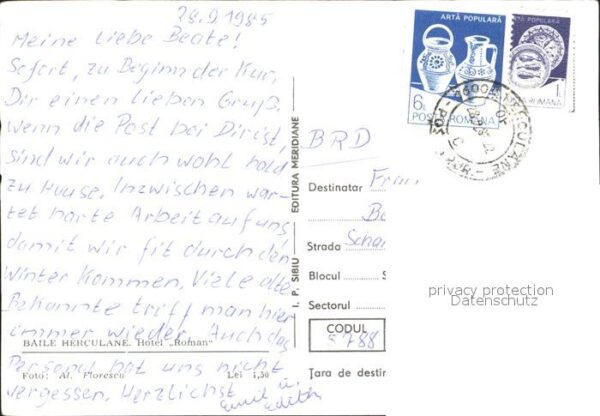 28.9.1985
Meine liebe Beate!
Sofort, zu Beginn der Kur,
Dir einen lieben Gruß.
Wenn die Post bei Dir ist,
sind wir auch wohl bald
zu Hause. Inzwischen war-
tet harte Arbeit auf uns
damit wir fit durch den
Winter kommen. Viele alte
Bekannte triff man hier
immer wieder. Auch das
Personal hat uns nicht
vergessen. Herzlichst
Emil u.
Edith
BAILE HERCULANE. Hotel „Roman"
Foto: Al. Florescu Lei 1,50
I. P. SIBIU — EDITURA MERIDIANE
ARTĂ POPULARĂ
6L
POSTA ROMANA
ARTĂ POPULARĂ
1L
ROMANA
BRD
Destinatar
Strada
Blocul S
Sectorul
CODUL
5788
Țara de destin
privacy protection
Datenschutz